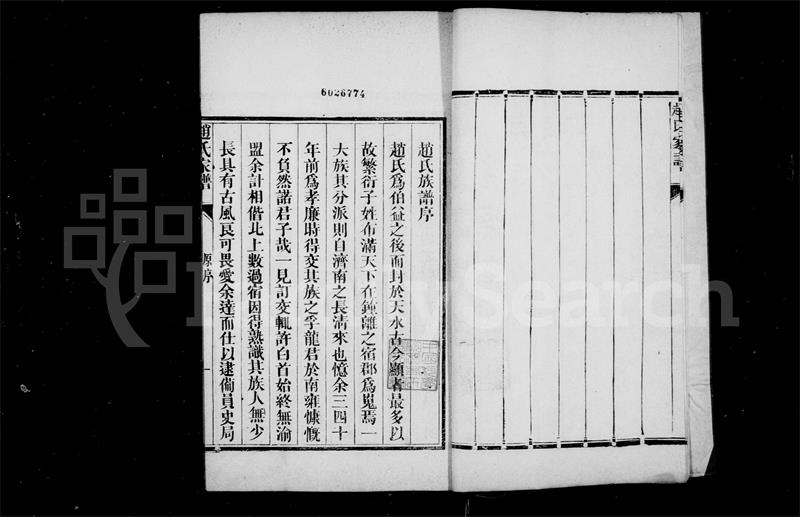 6026774
趙氏家譜
趙氏族譜序
趙氏爲伯益之後而封於天水古今顯者最多以
故繁衍子姓布滿天下在鍾離之宿郡爲嵬焉一
大族其分派則自濟南之長清來也憶余三四十
年前爲孝廉時得交其族之孚龍君於南雍慷慨
不負然諾君子哉一見訂交輒許白首始終無渝
盟余計相偕北上數過宿因得熟識其族人無少
長具有古風良可畏愛余達而仕以逮備員史局
趙氏家譜
原序
一
FamilySearch